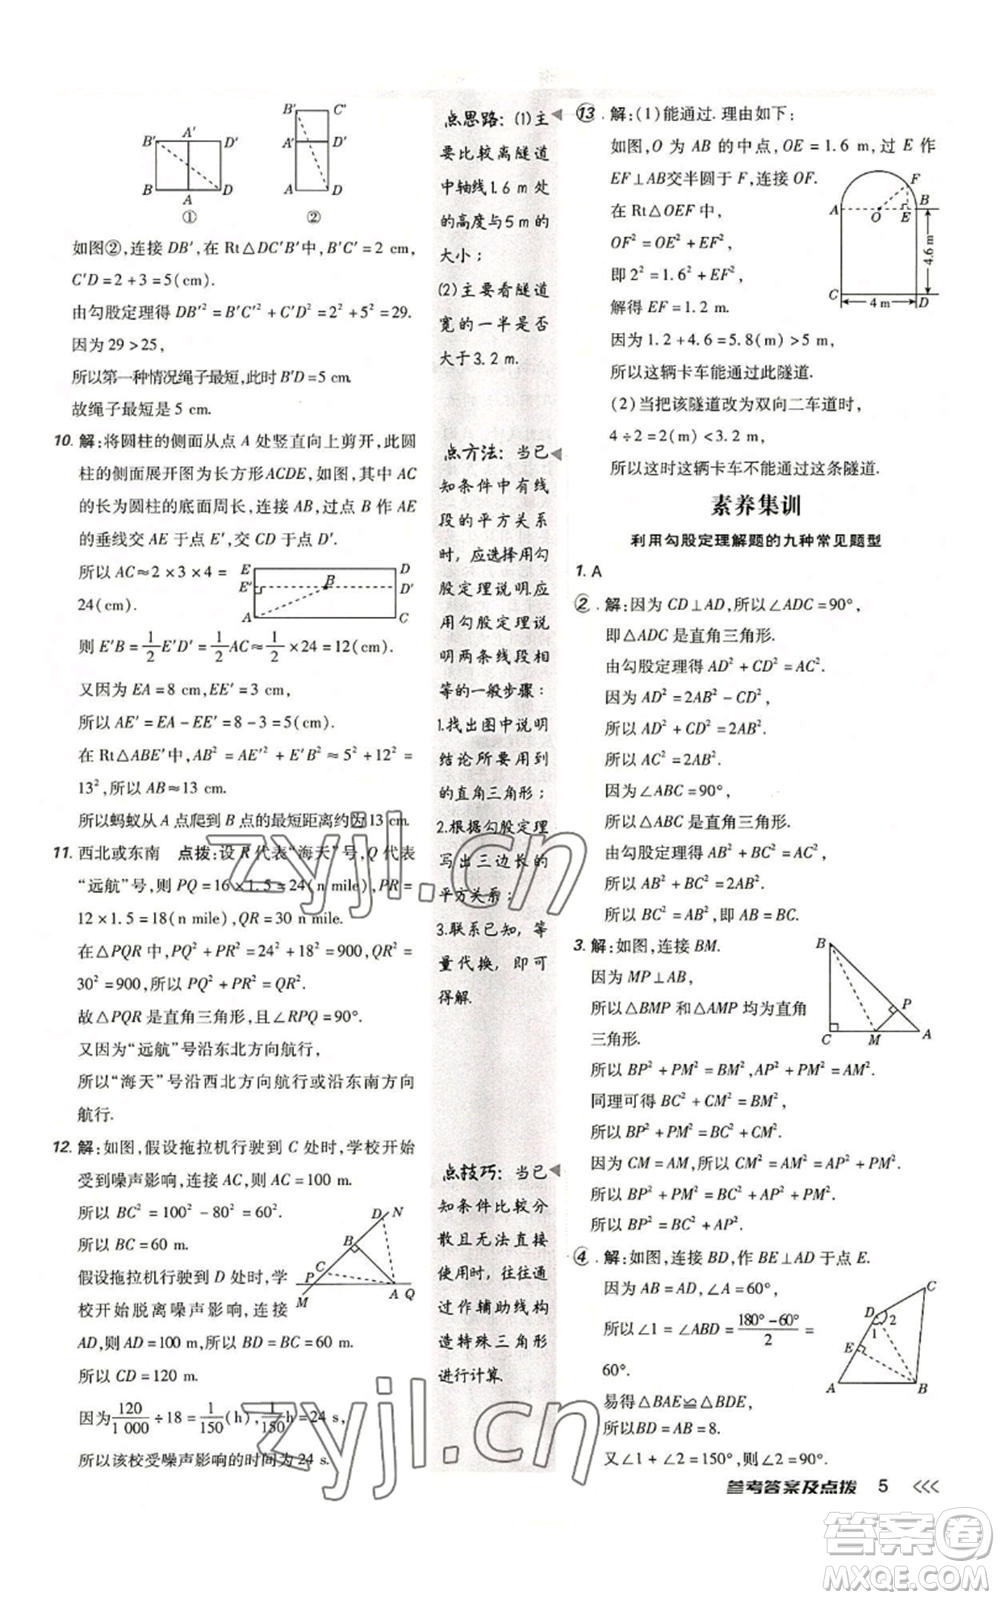 B' A' D'
B A D
①
B' C'
A' D'
B
A D
②
如图②,连接 DB′,在 Rt△DC′B′中,B′C′=2 cm,
C′D=2+3=5(cm).
由勾股定理得 DB′²=B′C′²+C′D²=2²+5²=29.
因为 29>25,
所以第一种情况绳子最短,此时 B′D=5 cm.
故绳子最短是 5 cm.
10. 解:将圆柱的侧面从点 A 处竖直向上剪开,此圆
柱的侧面展开图为长方形ACDE,如图,其中 AC
的长为圆柱的底面周长,连接 AB,过点 B 作 AE
的垂线交 AE 于点 E′,交 CD 于点 D′.
所以 AC≈2×3×4=
24(cm).
E D
E′ B D′
A C
则 E′B=1/2E′D′=1/2AC≈1/2×24=12(cm).
又因为 EA=8 cm,EE′=3 cm,
所以 AE′=EA−EE′=8−3=5(cm).
在 Rt△ABE′中,AB²=AE′²+E′B²≈5²+12²=
13²,所以 AB≈13 cm.
所以蚂蚁从 A 点爬到 B 点的最短距离约因13 cm.
11. 西北或东南 点拨:设 R 代表“海天”号,Q 代表
“远航”号,则 PQ=16×1.5=24(n mile),PR=
12×1.5=18(n mile),QR=30 n mile.
在△PQR 中,PQ²+PR²=24²+18²=900,QR²=
30²=900,所以 PQ²+PR²=QR².
故△PQR 是直角三角形,且∠RPQ=90°.
又因为“远航”号沿东北方向航行,
所以“海天”号沿西北方向航行或沿东南方向
航行.
12. 解:如图,假设拖拉机行驶到 C 处时,学校开始
受到噪声影响,连接 AC,则 AC=100 m.
所以 BC²=100²−80²=60².
所以 BC=60 m.
假设拖拉机行驶到 D 处时,学
校开始脱离噪声影响,连接
AD,则 AD=100 m,所以 BD=BC=60 m.
所以 CD=120 m.
因为120/1 000÷18=1/150(h),1/150h=24 s,
所以该校受噪声影响的时间为 24 s.
D N
B
C
P
M A Q
点思路: (1)主
要比较离隧道
中轴线1.6 m 处
的高度与5 m的
大小;
(2)主要看隧道
宽的一半是否
大于3.2 m.
点方法: 当已
知条件中有线
段的平方关系
时,应选择用勾
股定理说明.应
用勾股定理说
明两条线段相
等的一般步骤:
1.找出图中说明
结论所要用到
的直角三角形;
2.根据勾股定理
写出三边长的
平方关系;
3.联系已知,等
量代换,即可
得解.
点技巧: 当已
知条件比较分
散且无法直接
使用时,往往通
过作辅助线构
造特殊三角形
进行计算.
13. 解:(1)能通过.理由如下:
如图,O 为 AB 的中点,OE=1.6 m,过 E 作
EF⊥AB交半圆于 F,连接 OF.
在 Rt△OEF 中,
OF²=OE²+EF²,
即 2²=1.6²+EF²,
解得 EF=1.2 m.
F
A O E B
4.6 m
C 4 m D
因为 1.2+4.6=5.8(m)>5 m,
所以这辆卡车能通过此隧道.
(2)当把该隧道改为双向二车道时,
4÷2=4(m)<3.2 m,
所以这时这辆卡车不能通过这条隧道.
素养集训
利用勾股定理解题的九种常见题型
1. A
2. 解:因为 CD⊥AD,所以∠ADC=90°,
即△ADC 是直角三角形.
由勾股定理得 AD²+CD²=AC².
因为 AD²=2AB²−CD²,
所以 AD²+CD²=2AB².
所以 AC²=2AB².
因为∠ABC=90°,
所以△ABC 是直角三角形.
由勾股定理得 AB²+BC²=AC².
所以 AB²+BC²=2AB².
所以 BC²=AB²,即 AB=BC.
3. 解:如图,连接 BM.
因为 MP⊥AB,
所以△BMP 和△AMP 均为直角
三角形.
B
P
C M A
所以 BP²+PM²=BM²,AP²+PM²=AM².
同理可得 BC²+CM²=BM²,
所以 BP²+PM²=BC²+CM².
因为 CM=AM,所以 CM²=AM²=AP²+PM².
所以 BP²+PM²=BC²+AP²+PM².
所以 BP²=BC²+AP².
4. 解:如图,连接 BD,作 BE⊥AD 于点 E.
因为 AB=AD,∠A=60°,
所以∠1=∠ABD=180°−60°/2=
60°.
易得△BAE≌△BDE,
所以BD=AB=8.
又∠1+∠2=150°,则∠2=90°.
C
D
1 2
E
A B
参考答案及点拨 5
zyjl.cn
zyjl.cn
答案圈
MXQE.COM